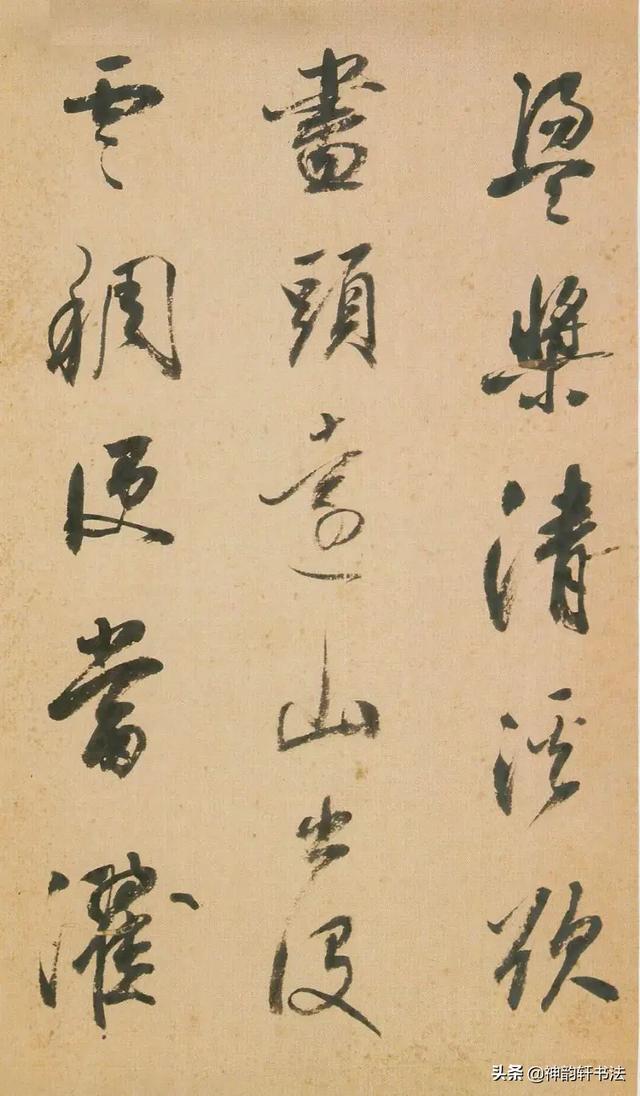 盪槳清溪欲
盡頭遠山出沒
雲稠便當濯
头条 @神韵轩书法